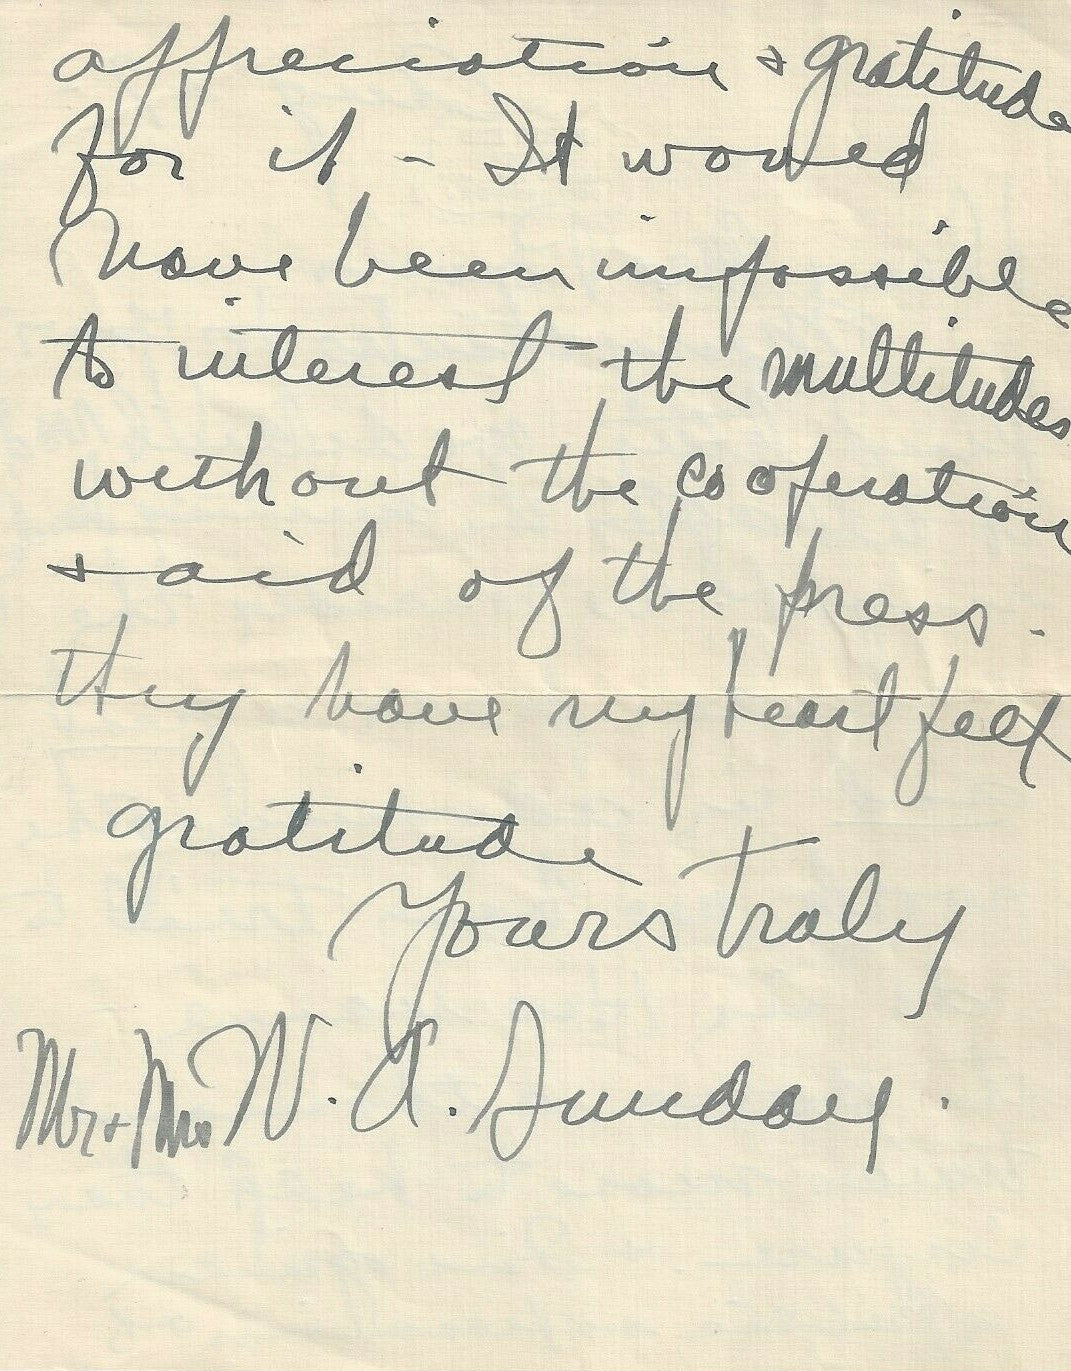 appreciation + gratitude
for it - It would
have been impossible
to interest the multitudes
without the cooperation
+ aid of the press.
they have my heart felt
gratitude
Yours truly
Mr + Mrs W. A. Sunday.